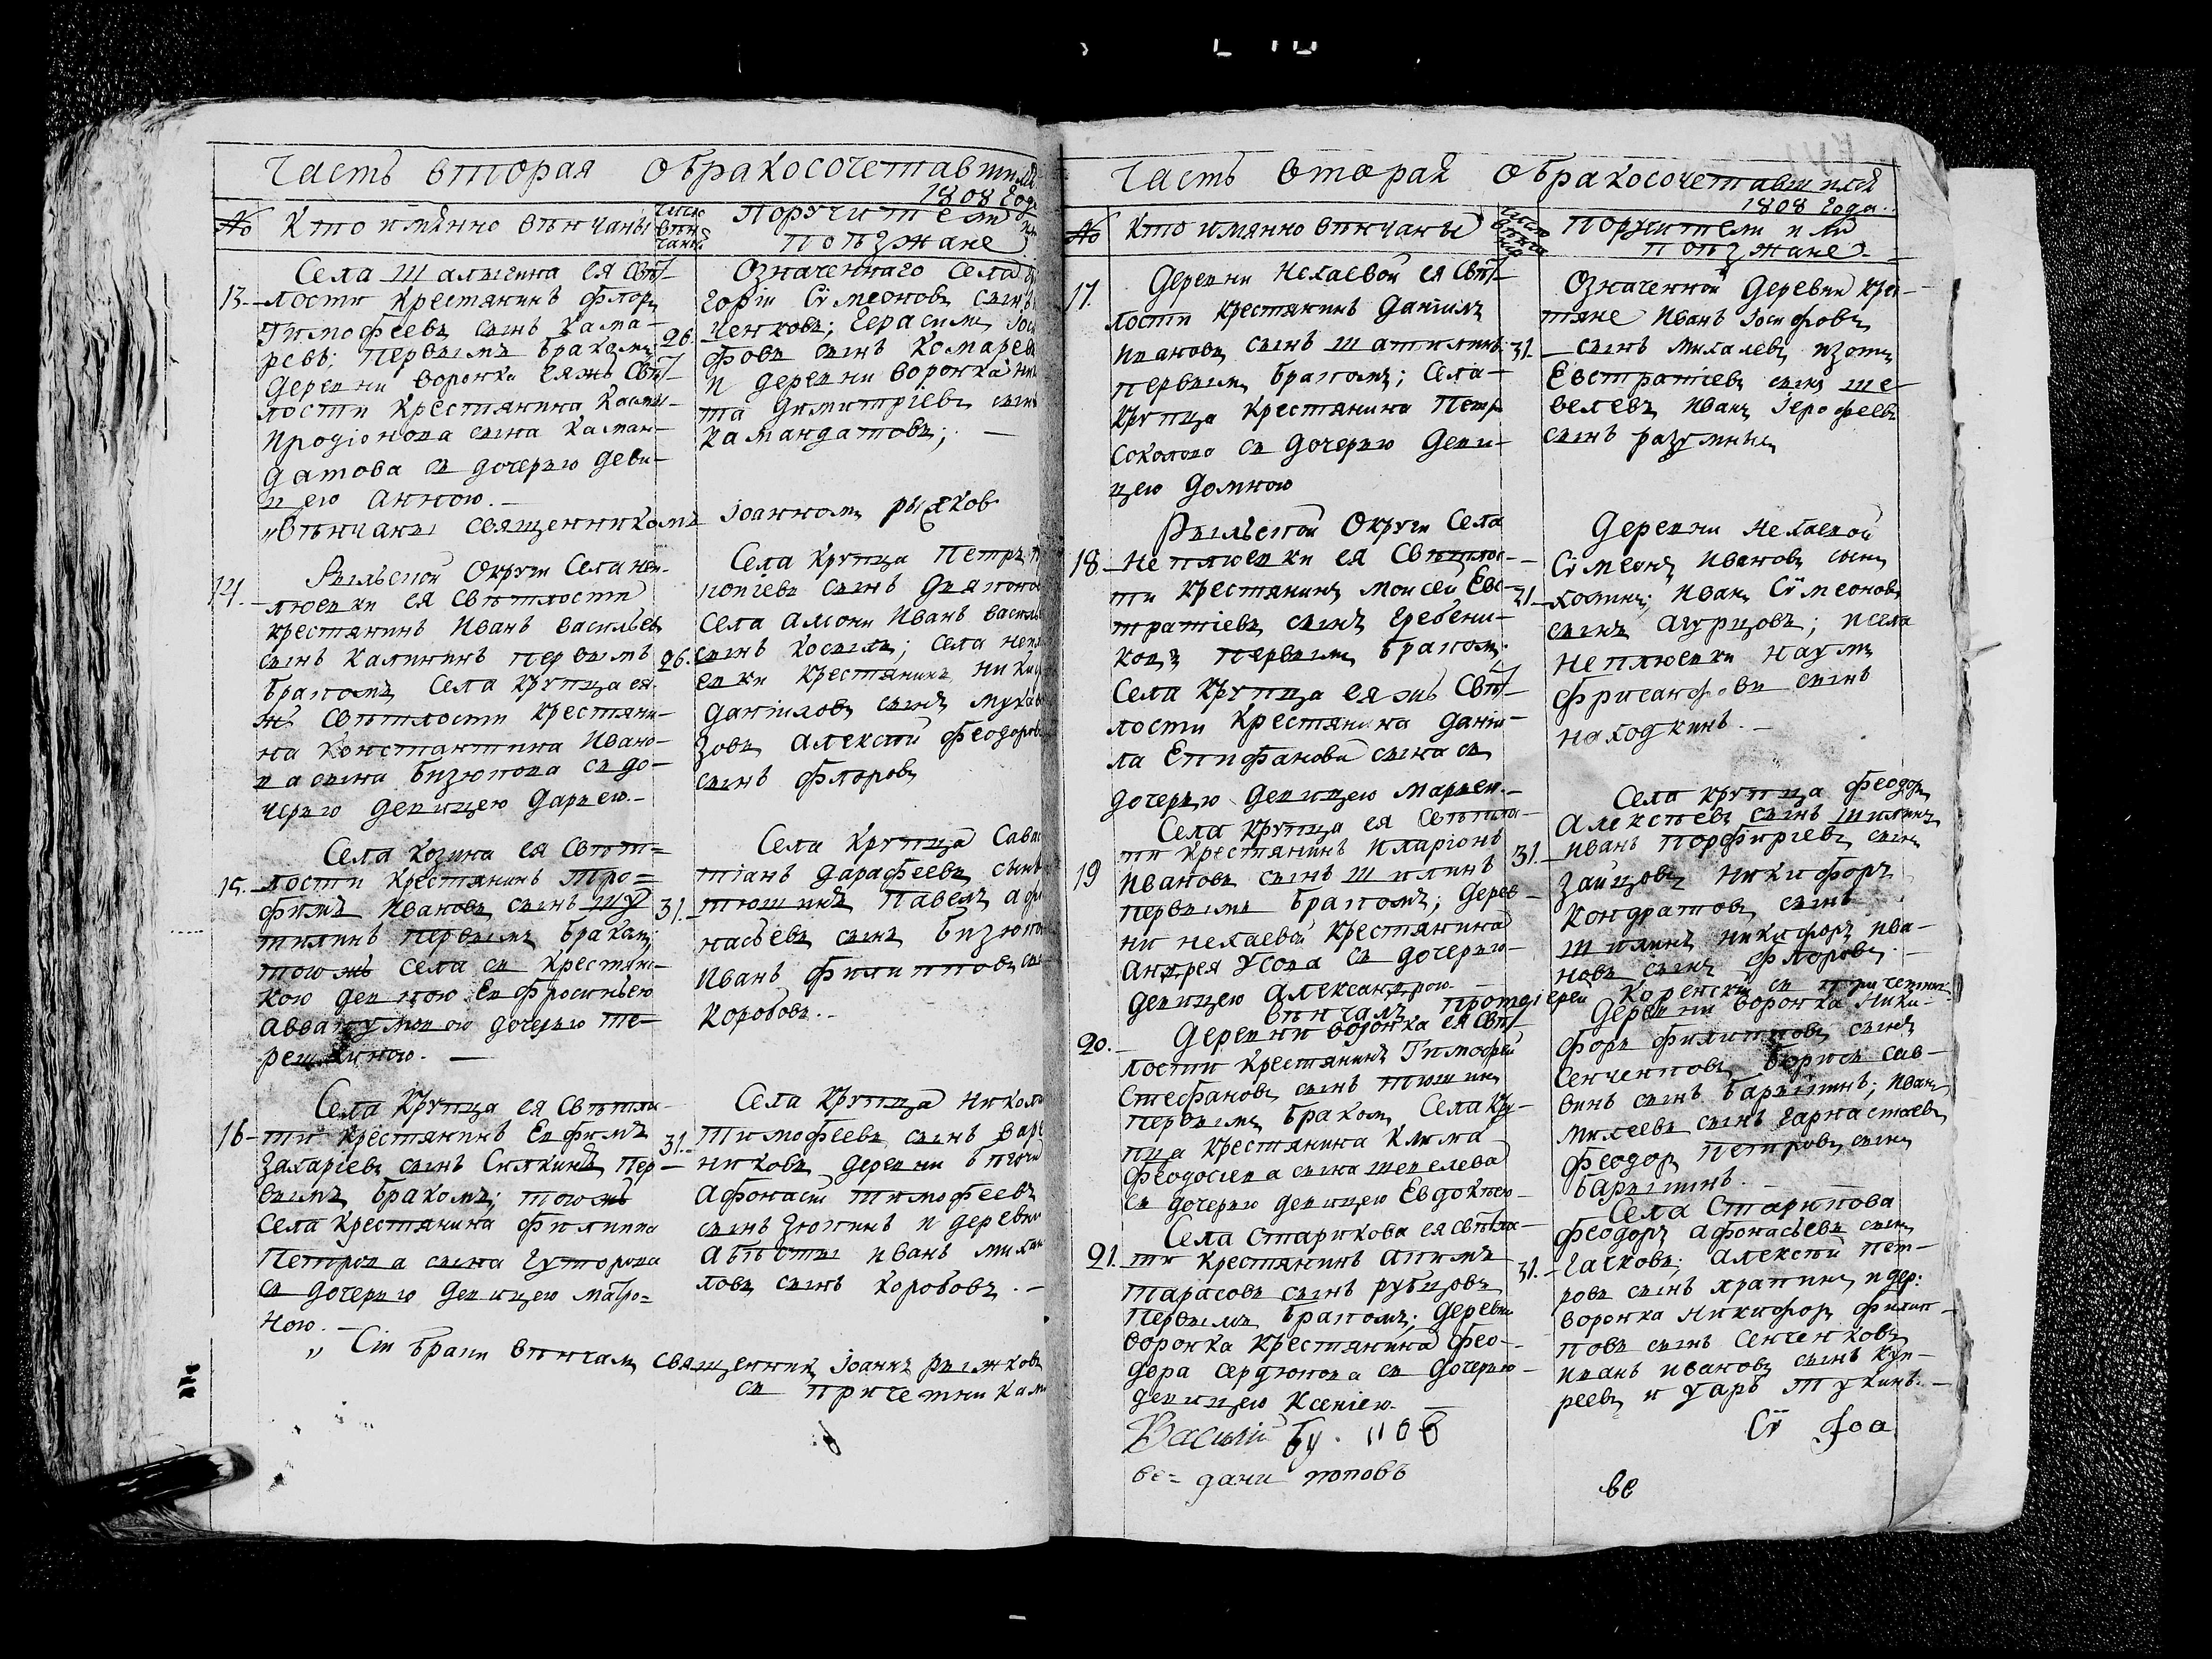 Часть вторая о бракосочетавшихся
1808 Года
№ Кто имянно венчаны
число венчаний
Поручители или
поѣзжане
Села Шалыгина ея Свѣт-
13. лости Крестянинъ Флоръ
Тимофеевъ сынъ Кама-
ревъ; первымъ бракомъ
деревни воронка еяжъ Свѣт-
лости Крестянина Касми-
Иродіонова сына Каман-
датова съ дочерью деви-
цею Анною.-
"Вѣнчаны священникомъ
26.
Означеннаго Села
Сѵмеоновъ сынъ
ченковъ; Герасимъ Іоси
фовъ сынъ Комаревъ
и деревни воронка Ники
та Димитріевъ сынъ
Камандатовъ; —
Іоанномъ рыжков
Рыльской Округи Села неп-
14. люевки ея Свѣтлости
крестянинъ Иванъ васильевъ
сынъ Калининъ первымъ
бракомъ Села Крупца ея
жъ Свѣтлости Крестяни-
на Константина Ивано-
ва сына бизюкова съ до-
черью девицею Дарьею.-
26.
Села Крупца Петръ
копіевъ сынъ дьяконов
Села амони Иванъ василь
сынъ Косыхъ; села непл
евки Крестянинъ
Даніиловъ сынъ
зовъ Алексѣй Феодоров
сынъ Флоровъ
Села Козина ея Свѣт=
15. лости Крестянинъ Тро=
фимъ Ивановъ сынъ Шу
тилинъ первымъ бракомъ;
тогожъ села съ Крестянс-
кою девкою Ефросиньею
Аввакумовою дочерью те-
решкиною. —
31.
Села Крупца Савас
тіанъ дарафеевъ сынъ
тюшинъ Павелъ афа
насьевъ сынъ бизюков
Иванъ Филипповъ сын
Коробовъ.-
Села Крупца ея Свѣтлос-
16- ти Крестянинъ Ефимъ
Захаріевъ сынъ Силкинъ Пер-
вымъ бракомъ; тогожъ
Села Крестянина Филиппа
Петрова сына Гуторова
съ дочерью девицею Матро=
ною. -
31.-
Села Крупца Никола
Тимофеевъ сынъ Варе
никовъ деревни
Афонасій Тимофеевъ
сынъ Зюкинъ и деревни
Иванъ Михаи
ловъ сынъ Коробовъ.-
" Сіи браки вѣнчалъ священникъ Іоаннъ рыжковъ
съ причетниками
Часть вторая о бракосочетавшихся
1808 Года.
№ Кто имянно венчаны
Поручители или
поѣзжане.
17. Деревни Нелаевой ея Свѣт-
лости Крестянинъ Даніилъ
Ивановъ сынъ Шатилинъ
первымъ бракомъ; Села-
Крупца Крестянина Петра
Соколова съ дочерью деви-
цею Домною
31.
Означенной Деревни Крес-
тяне Иванъ Іосифовъ
сынъ Михалевъ Изотъ
Евстратіевъ сынъ Ше-
велевъ Иванъ Іерофеевъ
сынъ разумный
Рыльской Округи Села
18- Неплюевки ея Свѣтлос-
ти Крестянинъ Моисей Евс-
тратіевъ сынъ Гребени-
ковъ первымъ бракомъ;
Села Крупца ея жъ Свѣт-
лости Крестянина Даніи-
ла Епифанова сына съ
дочерью девицею Марьею.-
31-
Деревни Нелаевой
Сѵмеонъ Ивановъ сынъ
Иванъ Сѵмеоновъ
сынъ Агурцовъ; и села
Неплюевки Наумъ
Фрисанфовъ сынъ
находкинъ.-
Села Крупца ея Свѣтлос-
ти Крестянинъ Иларіонъ
19 Ивановъ сынъ Шилинъ
первымъ бракомъ; Дерев-
ни нелаевой Крестянина
Андрея Усова съ дочерью
девицею Александрою
31.-
Села Крупца Феодоръ
Алексѣевъ сынъ Шилинъ
Иванъ Порфиріевъ сынъ
Зайцовъ Никифоръ
Кондратовъ сынъ
Шилинъ Никифоръ Ива-
новъ сынъ Флоровъ -
вѣнчалъ протоіерей Коренскій съ причетник
20.- Деревни воронка ея Свѣт-
лости Крестянинъ Тимофей
Стефановъ сынъ Тюшинъ
первымъ бракомъ Села Кру-
пца Крестянина Клима
Феодосіева сына шевелева
съ дочерью девицею Евдокією-
Деревни воронка Ники-
форъ Филиповъ сынъ
Сенченковъ Борисъ Сав-
винъ сынъ барышинъ; Иванъ
Михеевъ сынъ Гарнастаевъ
Феодоръ Петровъ сынъ
барышинъ. -
Села Старикова ея Свѣтлос-
21. ти Крестянинъ Акимъ
Тарасовъ сынъ рубцовъ
Первымъ бракомъ; деревни
воронка Крестянина Фео-
дора Сердюкова съ дочерью
девицею Ксеніею.
31.-
Села Старикова
Феодоръ Афонасьевъ сынъ
Гачковъ; Алексѣй Пет-
ровъ сынъ Храпинъ и дер:
воронка Никифоръ Филип-
повъ сынъ Сенченковъ
Иванъ Ивановъ сынъ Куп-
реевъ и Уаръ Тукинъ.-
Василій
поповъ
ве